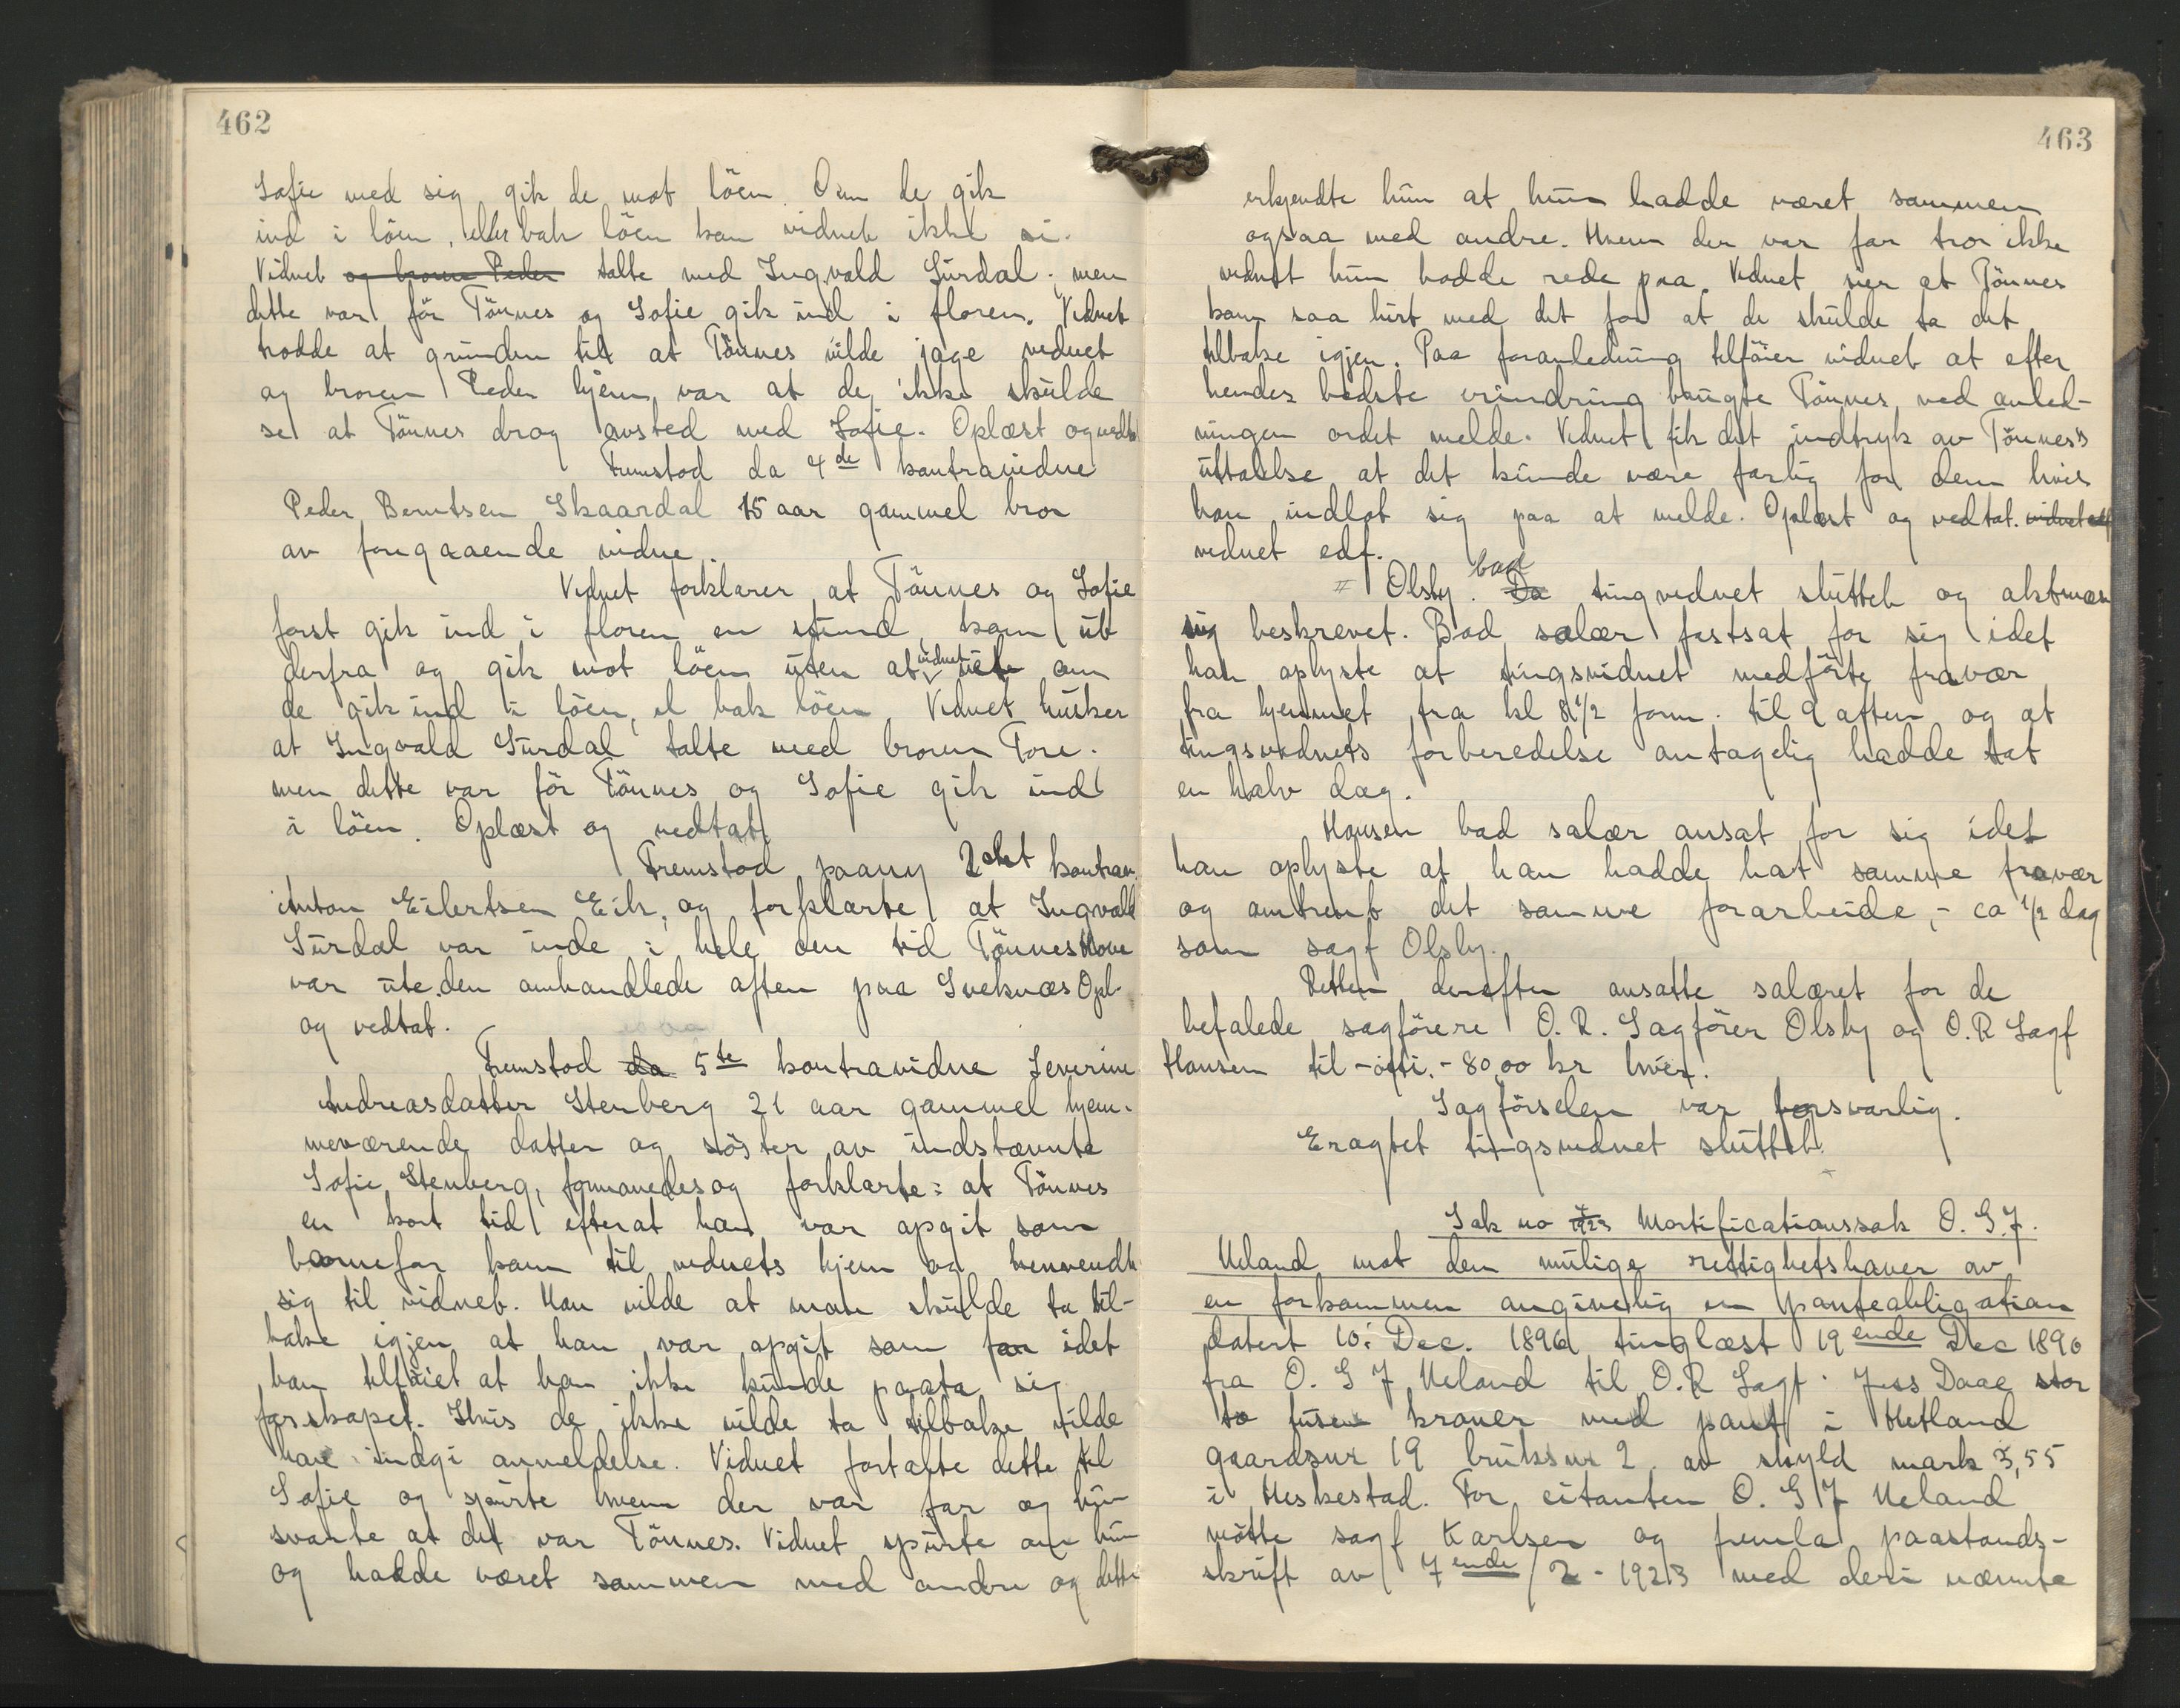 462
Sofie med sig gik de mot löen. Om de gik
ind i löen, eller bak löen kan vidnet ikke si.
Vidnet og broren Peder talte med Ingvald Surdal; men
dette var för Tönnes og Sofie gik ind i floren. Vidnet
trodde at grunden til at Tönnes vilde jage vidnet
og broren Peder hjem, var at de ikke skulde
se at Tönnes drog avsted med Sofie. Oplæst og vedt
Fremstod da 4de kontravidne
Peder Berntsen Skaardal 15 aar gammel bror
av foregaaende vidne.
Vidnet forklarer at Tönnes og Sofie
först gik ind i floren en stund, kom ut
derfra og gik mot löen uten at vidnet om
de gik ind i löen, el bak löen. Vidnet husker
at Ingvald Surdal talte med broren Tore.
men dette var för Tönnes og Sofie gik ind
i löen. Oplæst og vedtat.
Fremstod paany 2det kontrav.
Anton Eilertsen Eik, og forklarte at Ingvald
Surdal var inde i hele den tid Tönnes
var ute den omhandlede aften paa Opl.
og vedtat.
Fremstod da 5te kontravidne Severine
Andreasdatter Stenberg 21 aar gammel hjem-
meværende datter og söster av indstævnte
Sofie Stenberg, formanedes og forklarte: at Tönnes
en kort tid efterat han var opgit som
barnefar kom til vidnets hjem og henvendte
sig til vidnet. Han vilde at man skulde ta til-
bake igjen at han var opgit som far idet
han tilföiet at han ikke kunde paata sig
farskapet. Hvis de ikke vilde ta tilbake vilde
han indgi anmeldelse. Vidnet fortalte dette til
Sofie og spurte hvem der var far og hun
svarte at det var Tönnes. Vidnet spurte om hun
og hadde været sammen med andre og dette
463
erkjendte hun at hun hadde været sammen
ogsaa med andre. Hvem der var far tror ikke
vidnet hun hadde rede paa. Vidnet sier at Tönnes
kom saa hist med det for at de skulde ta det
tilbake igjen. Paa foranledning tilföier vidnet at efter
hendes bedste erindring brugte Tönnes ved anled-
ningen ordet melde. Vidnet fik det indtryk av Tönnes's
uttalelse at det kunde være farlig for dem hvis
han indlot sig paa at melde. Oplæst og vedtat. vidnet edf
vidnet edf.
Olsby. Da bad tingvidnet sluttet og aktmæs
sig beskrevet. Bad salær fastsat for sig idet
han oplyste at tingsvidnet medförte fravær
fra hjemmet fra kl 8 1/2 form. til 9 aften og at
tingsvidnets forberedelse antagelig hadde tat
en halv dag.
Hansen bad salær ansat for sig idet
han oplyste at han hadde hat samme fravær
og omtrent det samme forarbeide, - ca 1/2 dag
som sagf Olsby.
Retten derefter ansatte salæret for de
befalede sagförere O. R. Sagförer Olsby og O. R Sagf
Hansen til -otti,- 80,00 kr hver.
Sagförselen var forsvarlig.
Eragtet tingsvidnet sluttet.
Sak no Mortificationssak O. G. J.
Ueland mot den mulige rettighetshaver av
en forkommen angivelig en panteobligation
datert 10: Dec. 1896 tinglæst 19ende Dec 1896
fra O. G J Ueland til O. R Sagf. Jess Daae stor
to tusen kroner med pant i Hetland
gaardsnr 19 bruksnr 2 av skyld mark 3,55
i Heskestad. For citanten O. G J Ueland
mötte sagf Karlsen og fremla paastands-
skrift av 7ende/2-1923 med deri nævnte